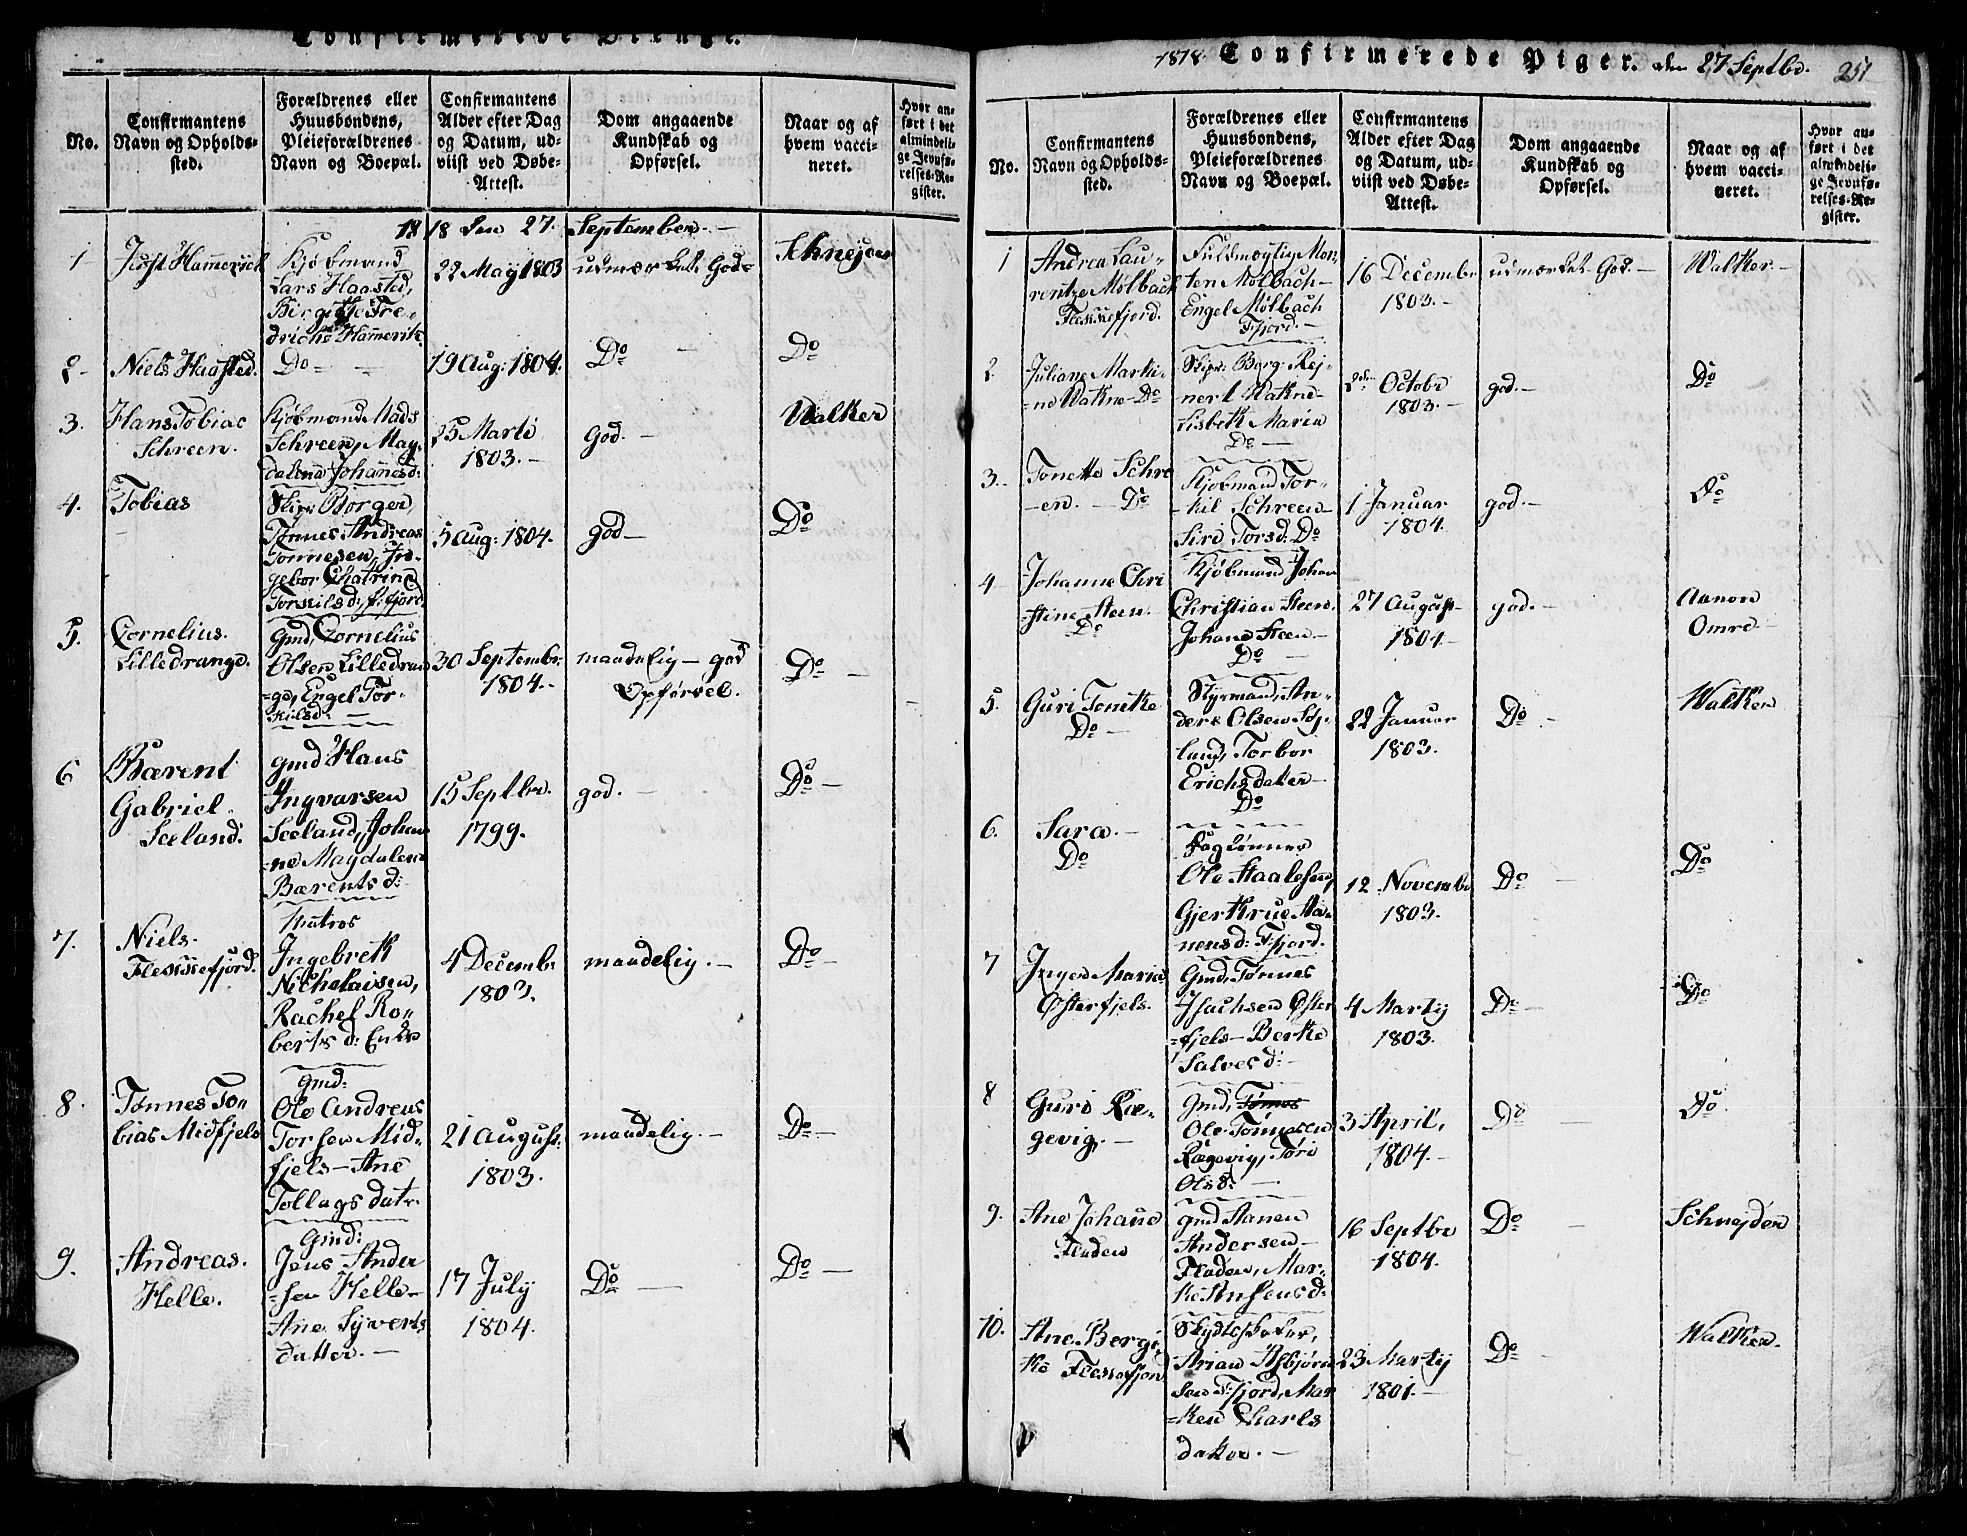 Confirmerede Drenge.
No.
Confirmantens
Navn og Opholds-
sted.
Forældrenes eller
Huusbondens,
Pleieforældrenes
Navn og Boepæl.
Confirmantens
Alder efter Dag
og Datum, ud-
viist ved Døbe-
Attest.
Dom angaaende
Kundskab og
Opførsel.
Naar og af
hvem vacci-
neret.
Hvor an-
ført i det
almindeli-
ge Jevnfø-
relses-Re-
gister.
1818 den 27. September. -
1
Just Hamerich
Kjøbmand
Lars Haasted,
Birgitte Fre-
drich Hamerik
22 May 1803
udmærket God-
Schnejder
2-
Niels Haasted.
Do - -
19 Aug: 1804.
Do -
Do
3.
Hans Tobias
Schreen.
Kjøbmand Mads
Schreen, Mag-
dalena Johanesd:
25 Marti
1803. -
God. -
Walker
4.
Tobias
Skip: Borger,
Tønnes Andreas
Tønnesen, In-
gebor Chatrine
Torkilsd: f:fjord.
5 Aug: 1804.
god -
Do
5.
Cornelius.
Lilledrange.
gmd, Cornelius
Olsen Lilledran
=ge, Engel Tor-
kilsd. -
30 Septembr.
1804. -
maadelig - god
Opførsel.
Do -
6
Bærent
Gabriel
Seeland.
gmd Hans
Ingvarsen
Seeland, Johan
=ne Magdalene
Bærentsd:
15 Septbr.
1799.
god. -
Do -
7.
Niels.
Flekkefjord.
Matros
Ingebrekt
Nicholaisen,
Rachel Ro-
bertsd: Enke
4 Decembr
1803.
maadelig. -
Do -
8.
Tønnes To-
bias Midfjels
gmd:
Ole Andreas
Torsen Mid-
fjels - Ane
Tollags datr.
21 August.
1803.
maadelig. -
Do -
9.
Andreas.
Helle.
Gmd:
Jens Ander
=sen Helle -
Ane Syverts
datter. -
17 July
1804.
Do -
Do -
1818. Confirmerede Piger. den 27 Septbr. 251
No.
Confirmantens
Navn og Opholds-
sted.
Forældrenes eller
Huusbondens,
Pleieforældrenes
Navn og Boepæl.
Confirmantens
Alder efter Dag
og Datum, ud-
viist ved Døbe-
Attest.
Dom angaaende
Kundskab og
Opførsel.
Naar og af
hvem vacci-
neret.
Hvor an-
ført i det
almindeli-
ge Jevnfø-
relses-Re-
gister.
1
Andrea Lau-
rentze Mølbach
Flekkefjord.
Fuldmægtig Mor-
ten Mølbach -
Engel Mølbach
Fjord. -
16 Decembr
1803. -
udmærket God. -
Walker -
2
Juliane Marti-
ne Watne - Do
Skipr: Borg: Rej-
nert Watne
Lisbeth Maria
Do -
2den Octobr
1803. -
god. -
Do
3.
Tonette Schre
-en. - Do
Kjøbmand Tor-
kil Schreen -
Siri Torsd: Do
1 Januar
1804.
god. -
Do
4
Johanne Chri
stine Steen.
Do
Kjøbmand Johan
Christian Steen.
Johane Steen -
Do -
27 August -
1804 -
god. -
Aanon
Omre -
5.
Guri Tomike
Do -
Styrmand, An-
ders Olsen Sø-
lund, Torbor
Erichsdaten -
Do
22 Januar
1803. -
Do -
Walker
6.
Sara. -
Do
Daglønner
Ole Staalesen,
Gjertrue Aa-
nensd: Fjord.
12. Novembr
1803.
Do -
Do
7
Inger Marie
Østerfjels.
Gmd, Tønnes
Isachsen Øster
=fjels - Berte
Salvesd: -
4 Martij
1803.
Do -
Do
8
Guro Ræ-
gevig. -
Gmd, Tønnes
Ole Tønnesen
Rægevig, Tøri
Olsd: -
3 April,
1804. -
Do -
Do
9.
Ane Johane
Fladen
gmd Aanen
Andersen -
Fladen, Mar-
te Ansensd:
16 Septbr
1804.
Do -
Schnejder
10.
Ane Bergi-
te Flekkefjor
Skydtsskafer,
Arian Asbjørn
sen F:fjord, Mar
=ken Charls
dater. -
23 Martij
1801. -
Do -
Walker.